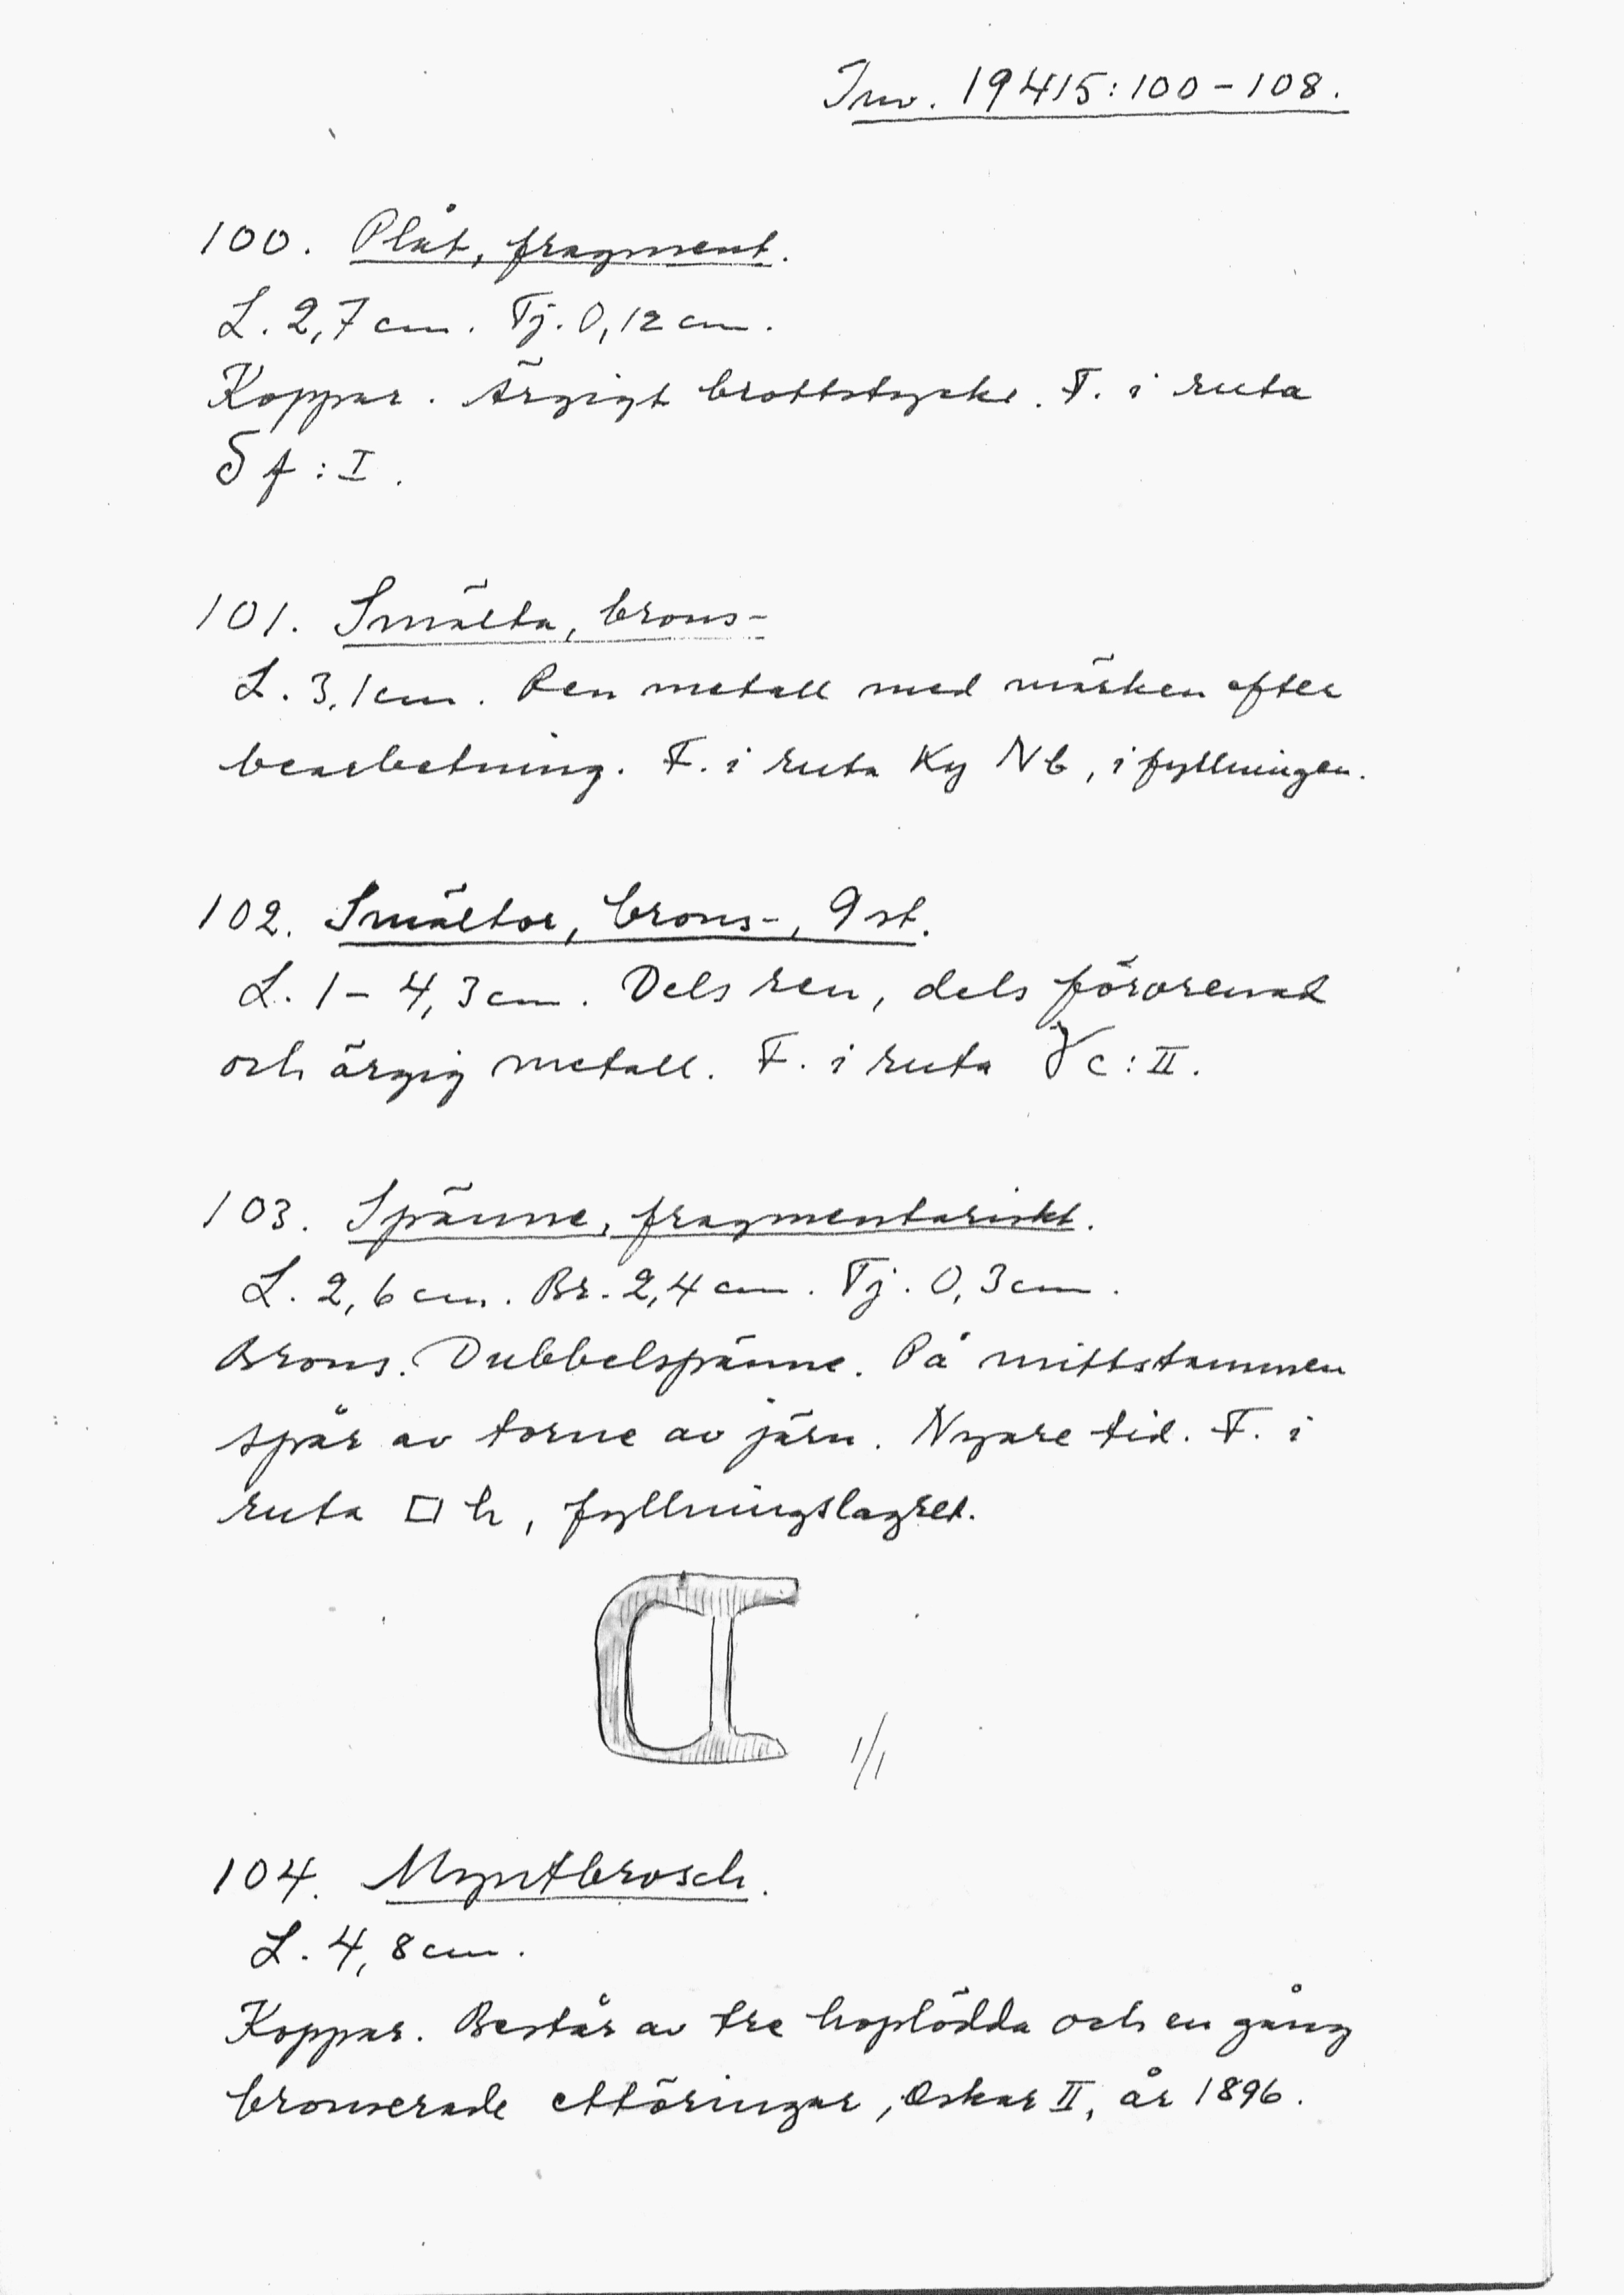 Inv. 19415:100-108.
100. Plåt, fragment.
L. 2,7 cm. Tj. 0,12 cm.
Koppar. Ärgigt brottstycke. F. i ruta
δ f : I.
101. Smälta, brons-
L. 3,1 cm. Ren metall med märken efter
bearbetning. F. i ruta Ky Nb, i fyllningen.
102. Smältor, brons-, 9 st.
L. 1 - 4,3 cm. Dels ren, dels förorenad
och ärgig metall. F. i ruta γ c : II.
103. Spänne, fragmentariskt.
L. 2,6 cm. Br. 2,4 cm. Tj. 0,3 cm.
Brons. Dubbelspänne. På mittstammen
spår av torne av järn. Nyare tid. F. i
ruta □ h, fyllningslagret.
1/1
104. Myntbrosch.
L. 4,8 cm.
Koppar. Består av tre hoplödda och en gång
bronserade ettöringar, Oskar II, år 1896.